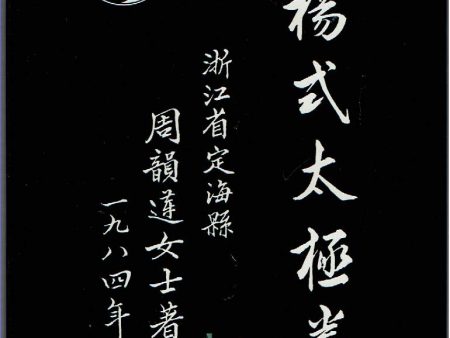 楊式太極
浙江省定海縣
周韻蓮女士著
一九八四年